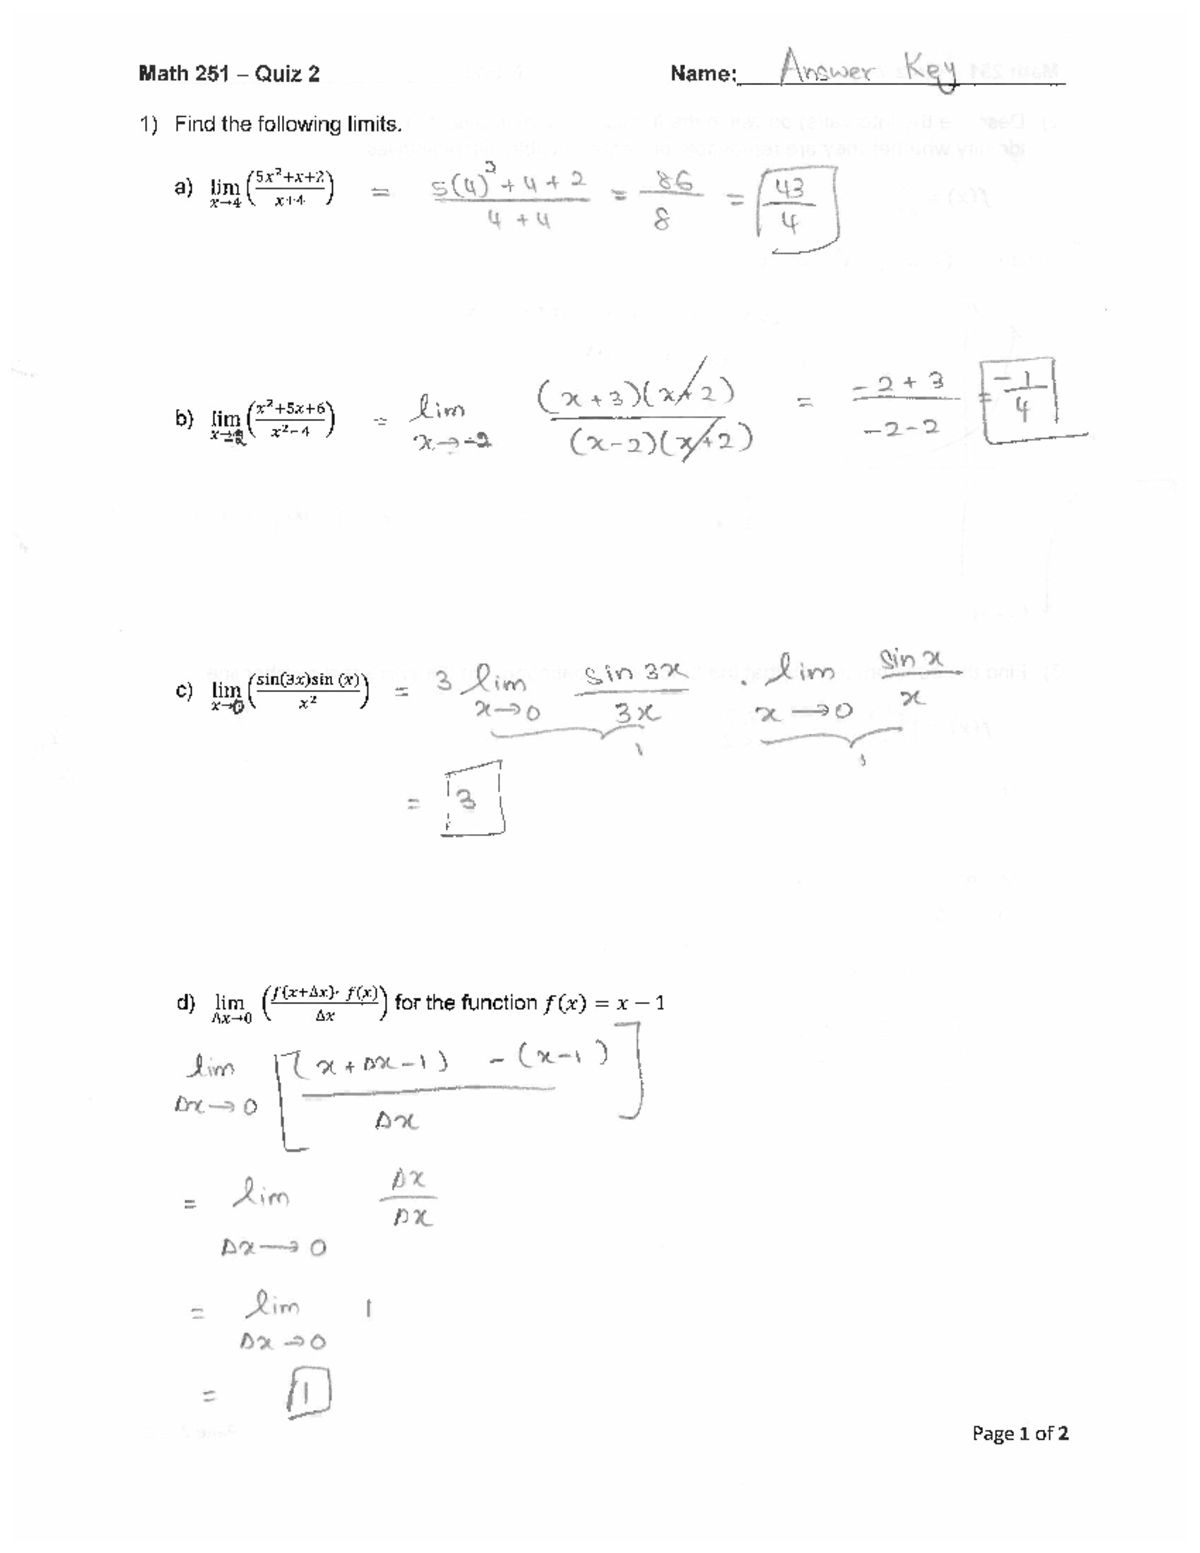 Math 251 – Quiz 2 Name: Answer Key
1) Find the following limits.
a) lim x→4 (5x²+x+2 / x+4) = 5(4)² + 4 + 2 / 4 + 4 = 86 / 8 = 43 / 4
b) lim x→-2 (x²+5x+6 / x²−4) = lim x→-2 (x+3)(x+2) / (x-2)(x+2) = -2+3 / -2-2 = -1 / 4
c) lim x→0 (sin(3x)sin (x) / x²) = 3 lim x→0 sin 3x / 3x · lim x→0 sin x / x
1 1
= 3
d) lim Δx→0 (f(x+Δx)- f(x) / Δx) for the function f(x) = x − 1
lim Δx→0 [(x+Δx-1) - (x-1) / Δx]
= lim Δx→0 Δx / Δx
= lim Δx→0 1
= 1
Page 1 of 2